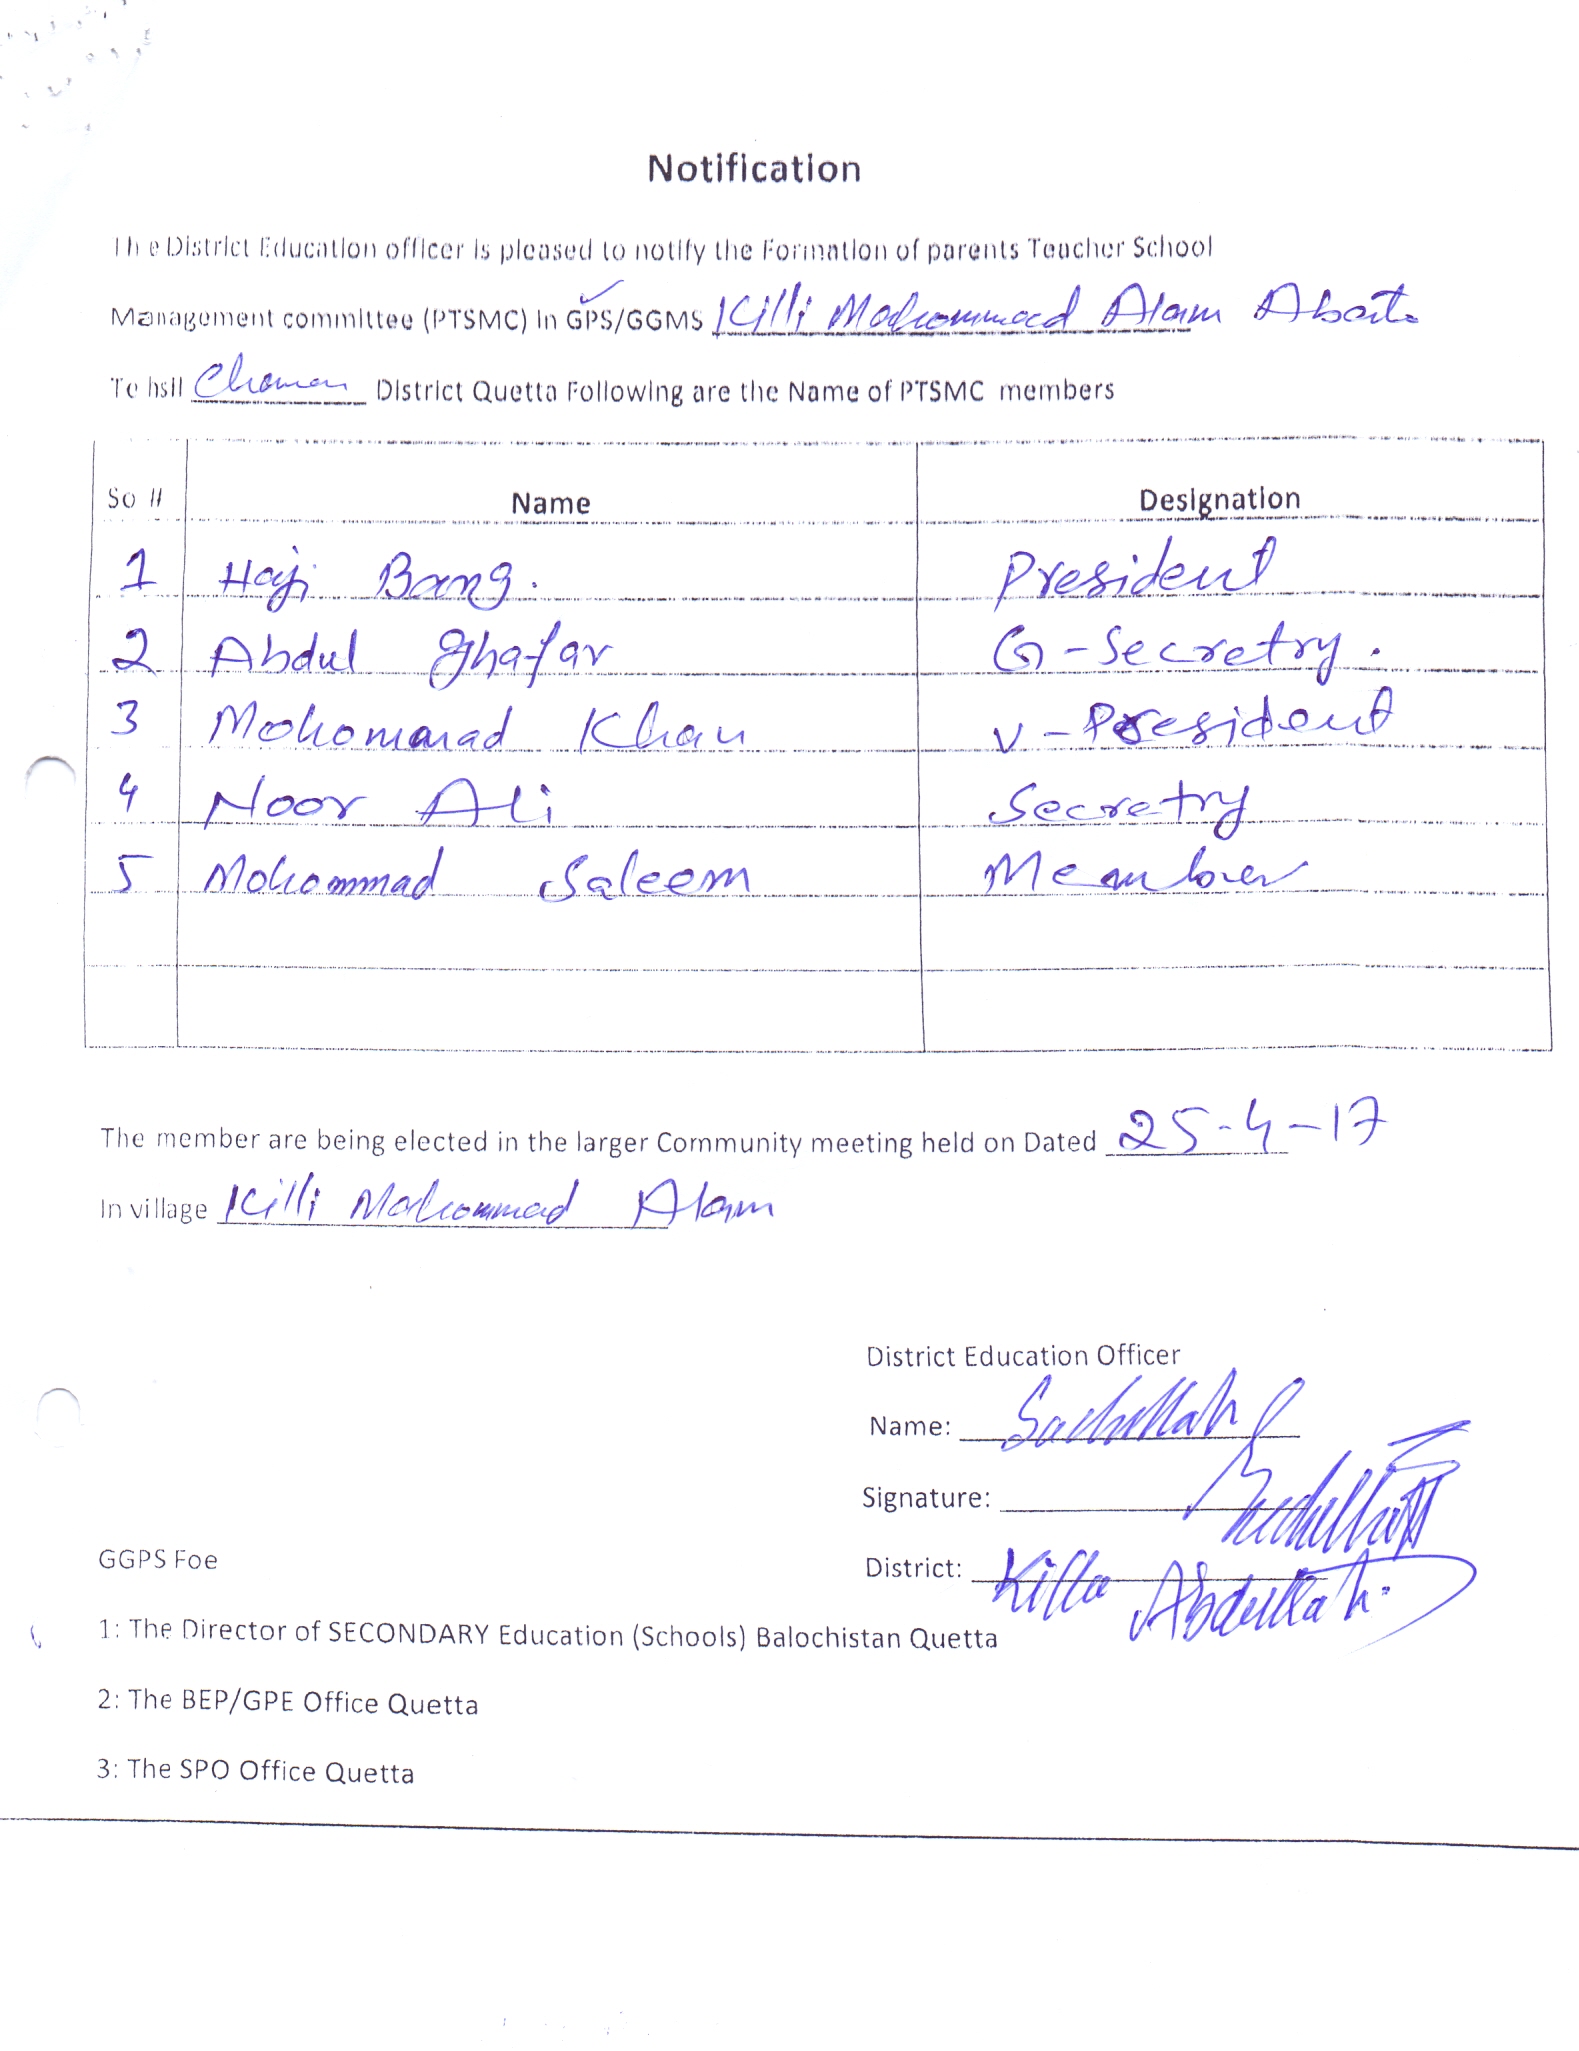 Notification
The District Education officer is pleased to notify the Formation of parents Teacher School
Management committee (PTSMC) In GPS/GGMS Killi Mohommad Alam
Tehsil Chaman District Quetta Following are the Name of PTSMC members
So # Name Designation
1 Haji Bang. President
2 Abdul ghafar G-Secretry.
3 Mohommad Khan v-President
4 Noor Ali Secretry
5 Mohommad Saleem Member
The member are being elected in the larger Community meeting held on Dated 25-4-17
In village Killi Mohommad Alam
District Education Officer
Name: Sadullah
Signature:
District: Killa Abdullah.
GGPS Foe
1: The Director of SECONDARY Education (Schools) Balochistan Quetta
2: The BEP/GPE Office Quetta
3: The SPO Office Quetta